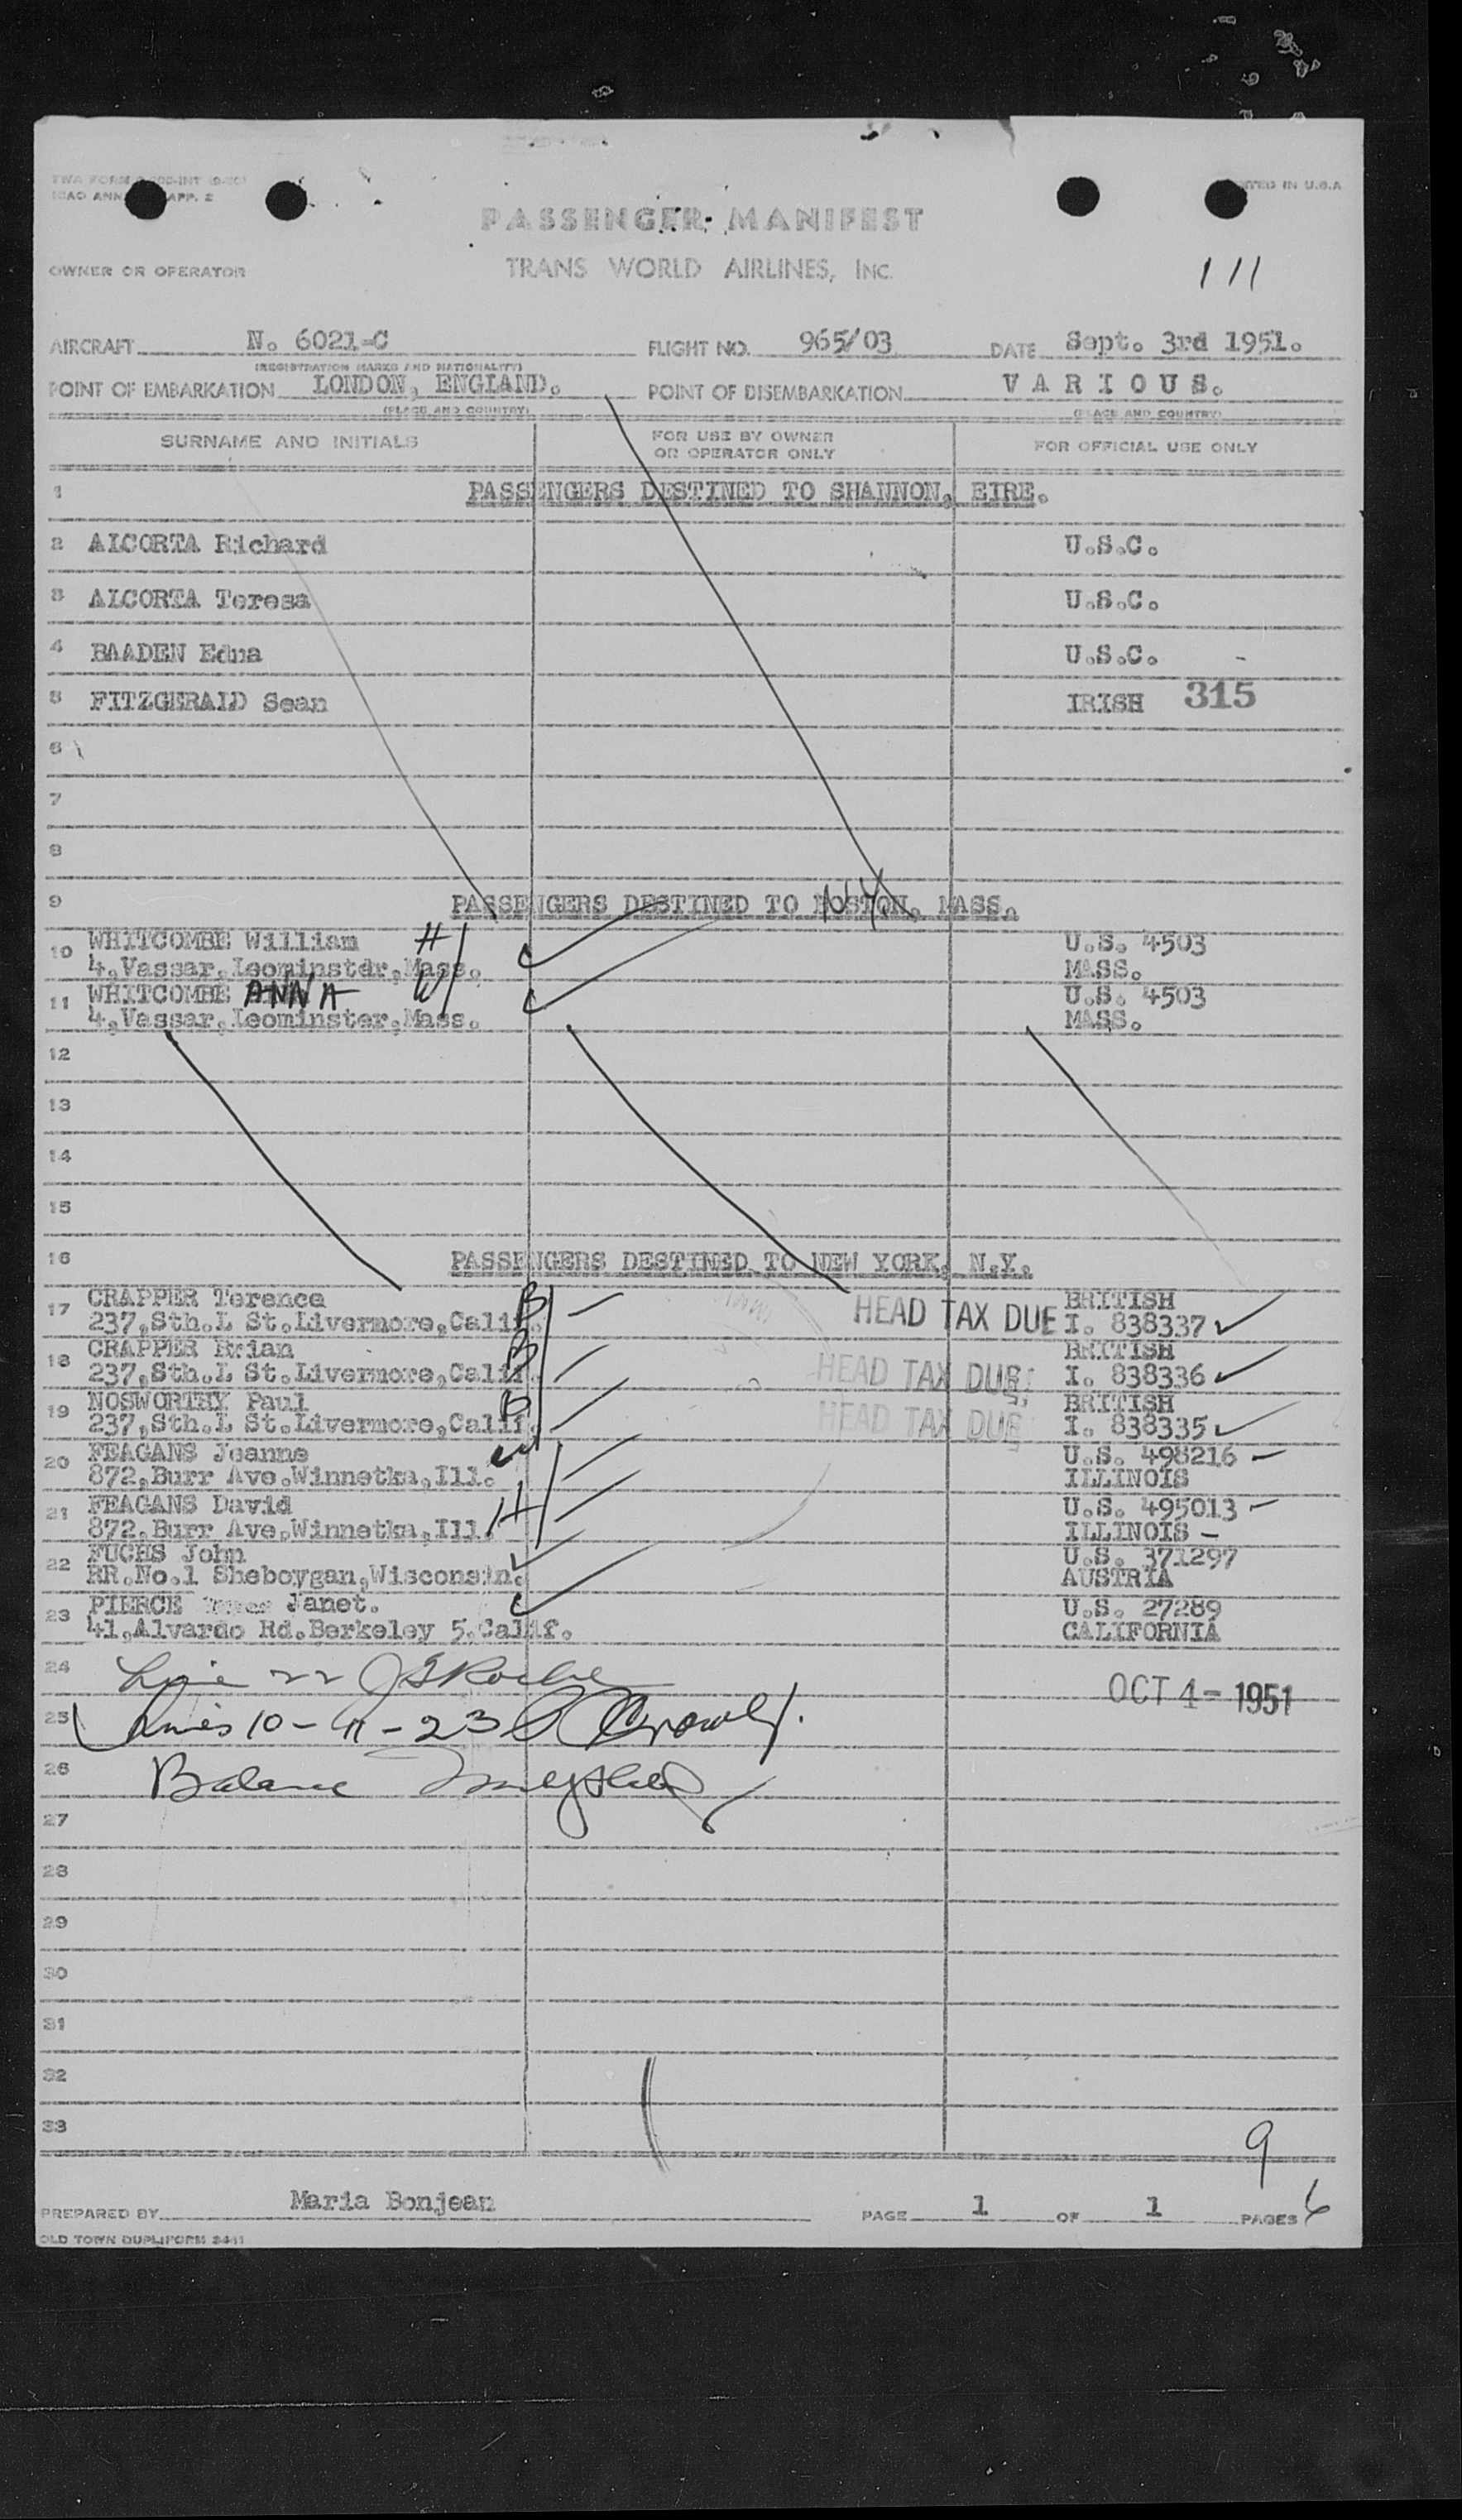 TWA FORM
ICAO ANN APP. 2
PRINTED IN U.S.A
PASSENGER MANIFEST
OWNER OR OPERATOR TRANS WORLD AIRLINES, INC. 111
AIRCRAFT N. 6021-C FLIGHT NO. 965/03 DATE Sept. 3rd 1951.
(REGISTRATION MARKS AND NATIONALITY)
POINT OF EMBARKATION LONDON, ENGLAND. POINT OF DISEMBARKATION VARIOUS.
(PLACE AND COUNTRY) (PLACE AND COUNTRY)
SURNAME AND INITIALS FOR USE BY OWNER OR OPERATOR ONLY FOR OFFICIAL USE ONLY
1 PASSENGERS DESTINED TO SHANNON, EIRE.
2 ALCORTA Richard U.S.C.
3 ALCORTA Teresa U.S.C.
4 BAADEN Edna U.S.C. -
5 FITZGERALD Sean IRISH 315
6
7
8
9 PASSENGERS DESTINED TO BOSTON, MASS. NY
10 WHITCOMBE William H U.S. 4503
4,Vassar,Leominster,Mass. MASS.
11 WHITCOMBE ANNA W U.S. 4503
4,Vassar,Leominster,Mass. MASS.
12
13
14
15
16 PASSENGERS DESTINED TO NEW YORK, N.Y.
17 CRAPPER Terence B HEAD TAX DUE BRITISH
237,Sth.L St.Livermore,Calif. I. 838337
18 CRAPPER Brian B HEAD TAX DUE BRITISH
237,Sth.L St.Livermore,Calif. I. 838336
19 NOSWORTHY Paul B HEAD TAX DUE BRITISH
237,Sth.L St.Livermore,Calif. I. 838335
20 FEAGANS Jeanne W U.S. 498216 -
872,Burr Ave.Winnetka,Ill. ILLINOIS
21 FEAGANS David H U.S. 495013 -
872,Burr Ave,Winnetka,Ill. ILLINOIS -
22 FUCHS John U.S. 371297
RR.No.1 Sheboygan,Wisconsin. AUSTRIA
23 PIERCE Janet. U.S. 27289
41,Alvardo Rd.Berkeley 5.Calif. CALIFORNIA
24 Line 22 OCT 4 - 1951
25 Lines 10 - 11 - 23
26 Balance
27
28
29
30
31
32
33
9
PREPARED BY Maria Bonjean PAGE 1 OF 1 PAGES 6
OLD TOWN DUPLIFORM 2441